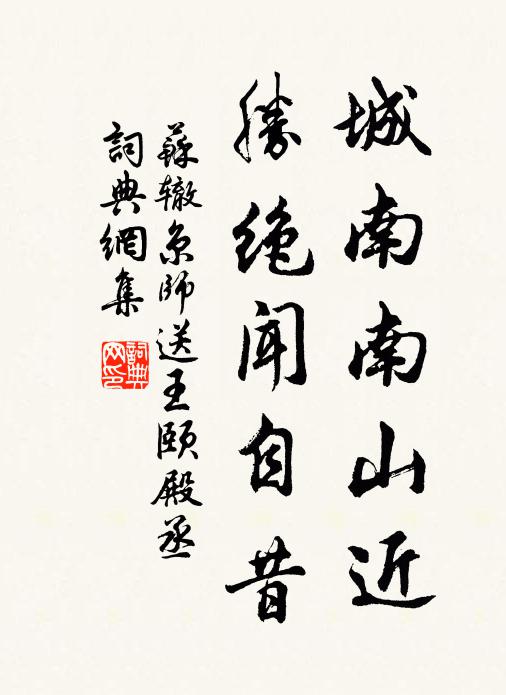 城南南山近
勝絶聞自昔
蘇辙京師送王頤殿丞
詞典網集
詞典
网印